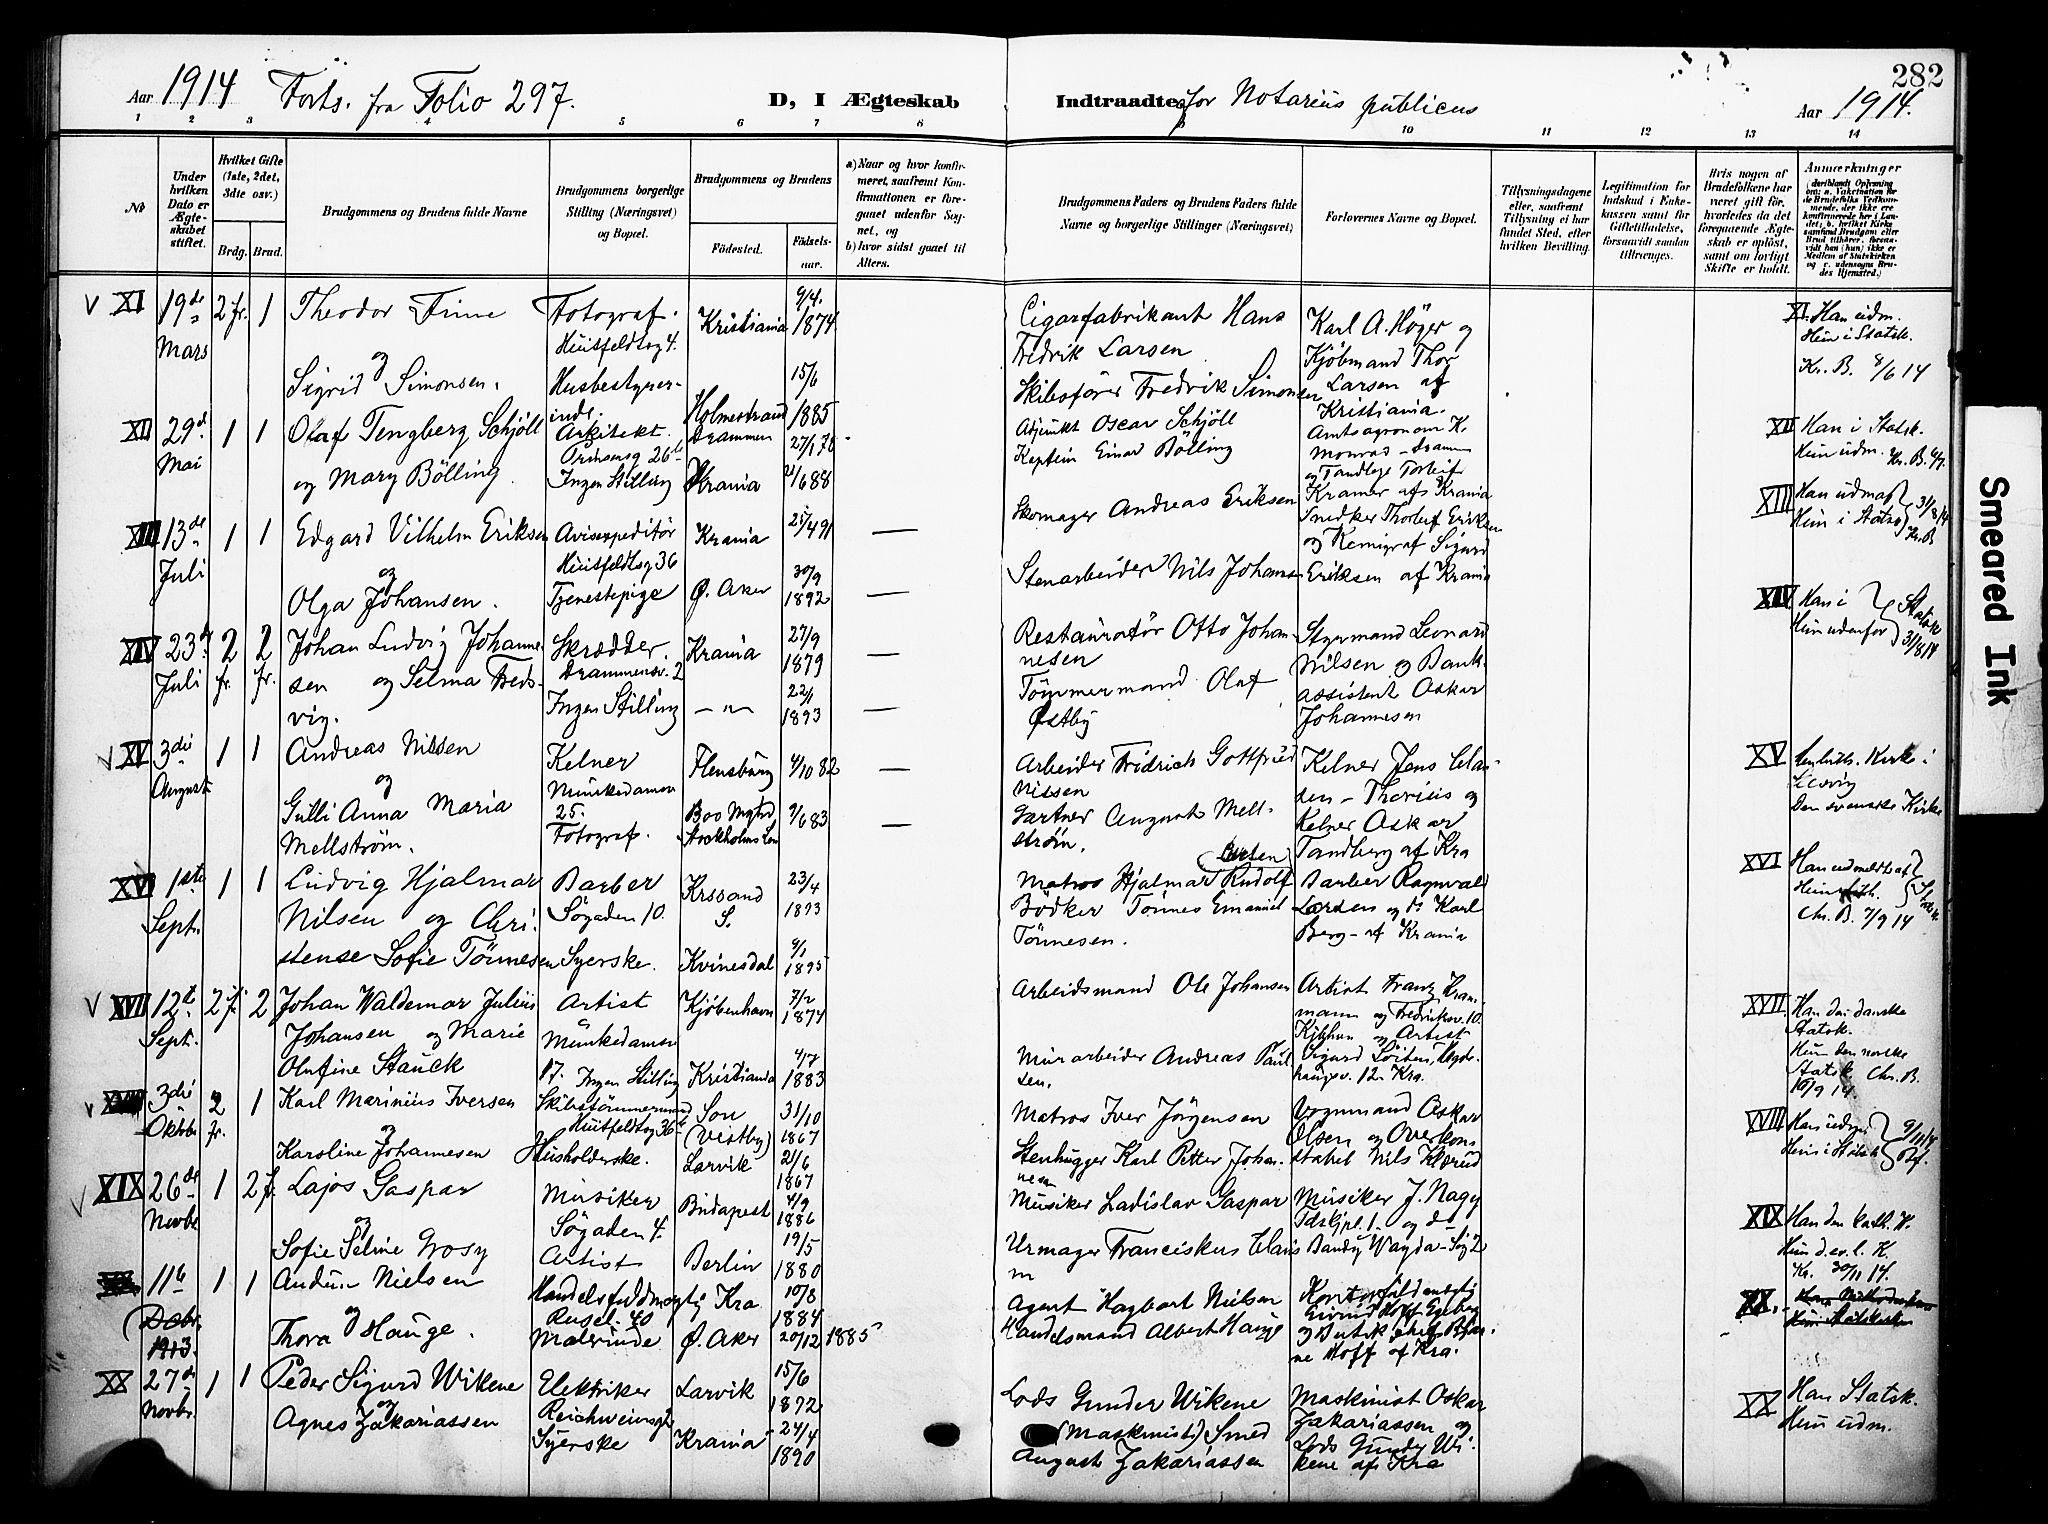 282
Aar 1914 Forts. fra Folio 297. D, I Ægteskab Indtraadte for Notarius publicus Aar 1914.
1 2 3 4 5 6 7 8 9 10 11 12 13 14
No
Under hvilken Dato er Ægteskabet stiftet.
Hvilket Gifte (1ste, 2det, 3dte osv.)
Brdg. Brud.
Brudgommens og Brudens fulde Navne
Brudgommens borgerlige Stilling (Næringsvei) og Bopæl.
Brudgommens og Brudens
Fødested. Fødselsaar.
a) Naar og hvor konfirmeret, saafremt Konfirmationen er foregaaet udenfor Sognet, og
b) hvor sidst gaaet til Alters.
Brudgommens Faders og Brudens Faders fulde Navne og borgerlige Stillinger (Næringsvei)
Forlovernes Navne og Bopæl.
Tillysningsdagene eller, saafremt Tillysning ei har fundet Sted, efter hvilken Bevilling.
Legitimation for Indskud i Enkekassen samt for Giftetilladelse, forsaavidt saadan tiltrænges.
Hvis nogen af Brudefolkene har været gift før, hvorledes da det foregaaende Ægteskab er opløst, samt om lovligt Skifte er holdt.
Anmærkninger
XI 19de Mars 2 fr. 1
Theodor Finne
og
Sigrid Simonsen.
Fotograf.
Huitfeldtsg 4.
Husbestyrerinde.
Kristiania 9/4. 1874
Holmestrand 15/6 1885
Cigarfabrikant Hans
Fredrik Larsen
Skibsfører Fredrik Simonsen
Karl A. Höger og
Kjöbmand Thor
Larsen af
Kristiania.
XI. Han udm.
Hun i Statsk.
Kr. B. 8/6 14
XII 29d. Mai 1 1
Olaf Tengberg Schjöll
og Mary Bölling.
Arkitekt.
Ingen Stilling
Drammen 27/1 78
Krania 21/6 88
Adjunkt Oscar Schjöll
Kaptein Einar Bölling
Amtsagronom K.
Monrad - Dramm
og Tandlege Torleif
Kramer af Krania
XII Han i Statsk.
Hun udm. Kr. B.
XIII 13de Juli 1 1
Edgard Vilhelm Eriksen
og
Olga Johansen.
Avisexpeditör
Huitfeldtsg 36
Tjenestepige
Krania 25/4 91
Ø. Aker 30/9 1892
Skomager Andreas Eriksen
Stenarbeider Nils Johansen
Snedker Thorleif Eriksen
og Kemigraf Sigurd
Eriksen af Krania
XIII Han udm.
Hun i Statsk. 31/8 14
Kr. B.
XIV 23d. Juli 2 fr. 2 fr.
Johan Ludvig Johannesen
og Selma Fredsvig.
Skrædder.
Drammensv. 2
Ingen Stilling
Krania 27/9 1879
— " — 22/1 1893
Restauratör Otto Johannesen
Tömmermand Olaf
Østby
Styrmand Leonard
Nilsen og Bankassistent Oskar
Johannesen
XIV Han i
Hun udenfor Statsk
31/8 14
XV 3die August 1 1
Andreas Nissen
og
Gulli Anna Maria
Mellström.
Kelner
Munkedamsv
25.
Fotograf.
Flensburg 4/10 82
Boo
Stockholms Len 7/6 83
Arbeider Fridrich Gottfried
Nissen
Gartner August Mellström.
Kelner Jens Clausen - Thorius og
Kelner Oskar
Tandberg af Kra
XV Kirke i
Slesvig
Den svenske Kirke
XVI 1ste Sept. 1 1
Ludvig Hjalmar
Nilsen og Christense Sofie Tönnesen
Barber
Søgaden 10.
Syerske.
Krssand S. 23/4 1893
Kvinesdal 9/1 1895
Matros Hjalmar Rudolf
Bödker Tönnes Emanuel
Tönnesen.
Barber Ragnvald
Larsen og do Karl
Berg - af Krania
XVI Han udmeldt af
Chr. B. 7/9 14
XVII 12te Sept. 2 fr 2
Johan Waldemar Julius
Johansen og Marie
Olufine Stauck
Artist
Munkedamsv
17. Ingen Stilling
Kjöbenhavn 7/2 1874
Kristiania 1883
Arbeidsmand Ole Johansen
Murarbeider Andreas Paulsen.
Artist Franz Krammann og Fredriksv. 10.
Kjbhvn og Artist
Sigurd
12 Kra.
XVII Han den danske
Statsk.
Hun den norske
Statsk. Chr. B.
10/9 14.
XVIII 3die Oktbr 2 fr. 1
Karl Marinius Iversen
og
Karoline Johannesen
Skibstömmermand
Huitfeldtsg 36
Husholderske.
Son (Vestby) 31/10 1867
Larvik 21/6 1867
Matros Iver Jörgensen
Stenhugger Karl Petter Johannesen
Vognmand Oskar
Olsen og Overkonstabel Nils
XVIII Han udm.
Hun i Statsk
XIX 26de Novbr 1 2 f.
Lajos Gaspar
og
Sofie Seline Grosy
Musiker
Søgaden 4.
Artist
Budapest 4/9 1886
Berlin 19/5 1880
Musiker Ladislav Gaspar
Urmager Franciskus
Musiker J. Nagy
1. og do
XIX Han den kath. K.
Hun d. ev. l. K.
Kr. 30/11 14.
11te Decbr. 1913. 1 1
Nielsen
og
Thora Hauge.
Handelsfuldmægtig
Rusel. 40
Malerinde
Kra 10/8 1884
Ø. Aker 20/12 1885
Agent Hagbart Nielsen
Handelsmand Albert Hauge
Kontorfuldmægtig
og
Hoff af Kra.
XX.
XX 27de Novbr. 1 1
Peder Sigurd Wikene
og
Agnes Zakariassen
Elektriker
Syerske
Larvik 15/6 1872
Krania 24/4 1890
Lods Gunder Wikene
(Maskinist) Smed
August Zakariassen
Maskinist Oskar
Zakariassen og
Lods Wikene af Kra
XX Han Statsk.
Hun udm.
Smeared Ink